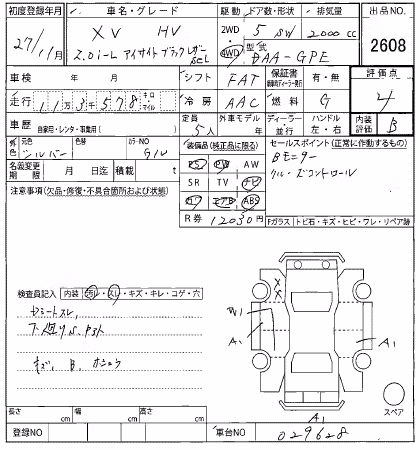 初度登録年月 車名・グレード 駆動 ドア数・形状 排気量 出品NO.
27/11月 XV HV 2WD 5 SW 2000 cc
2.0i-L アイサイト ブラックレザーSeL 4WD 型式 DAA-GPE 2608
車検 年 月 シフト FAT 保証書 有・無 評価点
走行 11万3千578 キロ マイル 冷房 AAC 燃料 G 4
車歴 自家用・レンタ・事業用( ) 定員 5人 外車モデル 年 ディーラー 並行 ハンドル 左・右 内装評価 B
外色 元色 シルバー 色替 カラーNO G1U
装備品(純正品に限る) セールスポイント(正常に作動するもの)
名義変更期限 月 日迄 積載 t
PS PW AW Bモニター
SR TV ナビ クルーズコントロール
注意事項(欠品・修復・不具合箇所および状態)
カワ エアB ABS
R券 12030円 Fガラス トビ石・キズ・ヒビ・ワレ・リペア跡
検査員記入 内装 汚レ・スレ・キズ・キレ・コゲ・穴
シートスレ
下廻りS
キズ、B、
W1
A1 A1
A1
スペア
長さ cm 幅 cm 高さ cm
登録NO 車台NO 029628